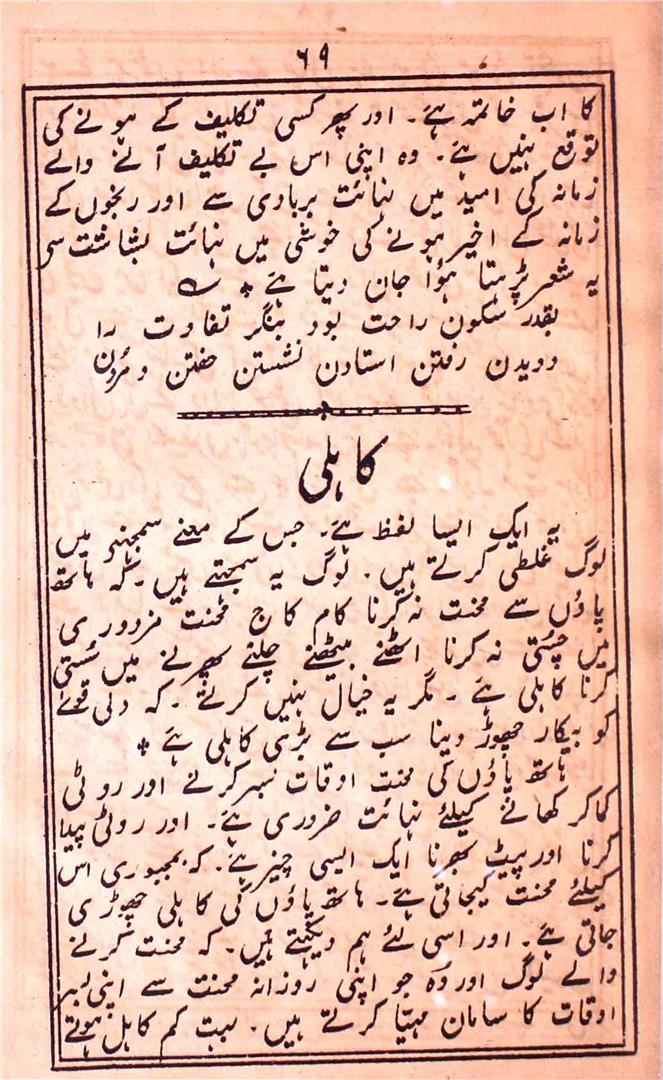 ۶۹
کا اب خاتمہ ہے۔ اور پھر کسی تکلیف کے ہونے کی
توقع نہیں ہے۔ وہ اپنی اس بے تکلیف آنے والے
زمانہ کی امید میں نہائت بردباری سے اور رنجوں کے
زمانہ کے اخیر ہونے کی خوشی میں نہائت بشاشت سے
یہ شعر پڑہتا ہؤا جان دیتا ہے *
بقدر سکون راحت بود بنگر تفاوت را
دویدن رفتن استادن نشستن خفتن و مردن
کاہلی
یہ ایک ایسا لفظ ہے۔ جس کے معنے سمجہنے میں
لوگ غلطی کرتے ہیں۔ لوگ یہ سمجہتے ہیں۔ کہ ہاتھ
پاؤں سے محنت نہ کرنا کام کاج محنت مزدوری
میں چستی نہ کرنا اٹھنے بیٹھنے چلنے پھرنے میں سستی
کرنا کاہلی ہے۔ مگر یہ خیال نہیں کرتے۔ کہ دلی قوےٰ
کو بیکار چھوڑ دینا سب سے بڑی کاہلی ہے *
ہاتھ پاؤں کی محنت اوقات بسر کرنے اور روٹی
کما کر کھانے کیلئے نہائت ضروری ہے۔ اور روٹی پیدا
کرنا اور پیٹ بھرنا ایک ایسی چیز ہے۔ کہ بمجبوری اس
کیلئے محنت کیجاتی ہے۔ ہاتھ پاؤں کی کاہلی چھوڑی
جاتی ہے۔ اور اسی لئے ہم دیکہتے ہیں۔ کہ محنت کرنے
والے لوگ اور وہ جو اپنی روزانہ محنت سے اپنی بسر
اوقات کا سامان مہیّا کرتے ہیں۔ بہت کم کاہل ہوتے